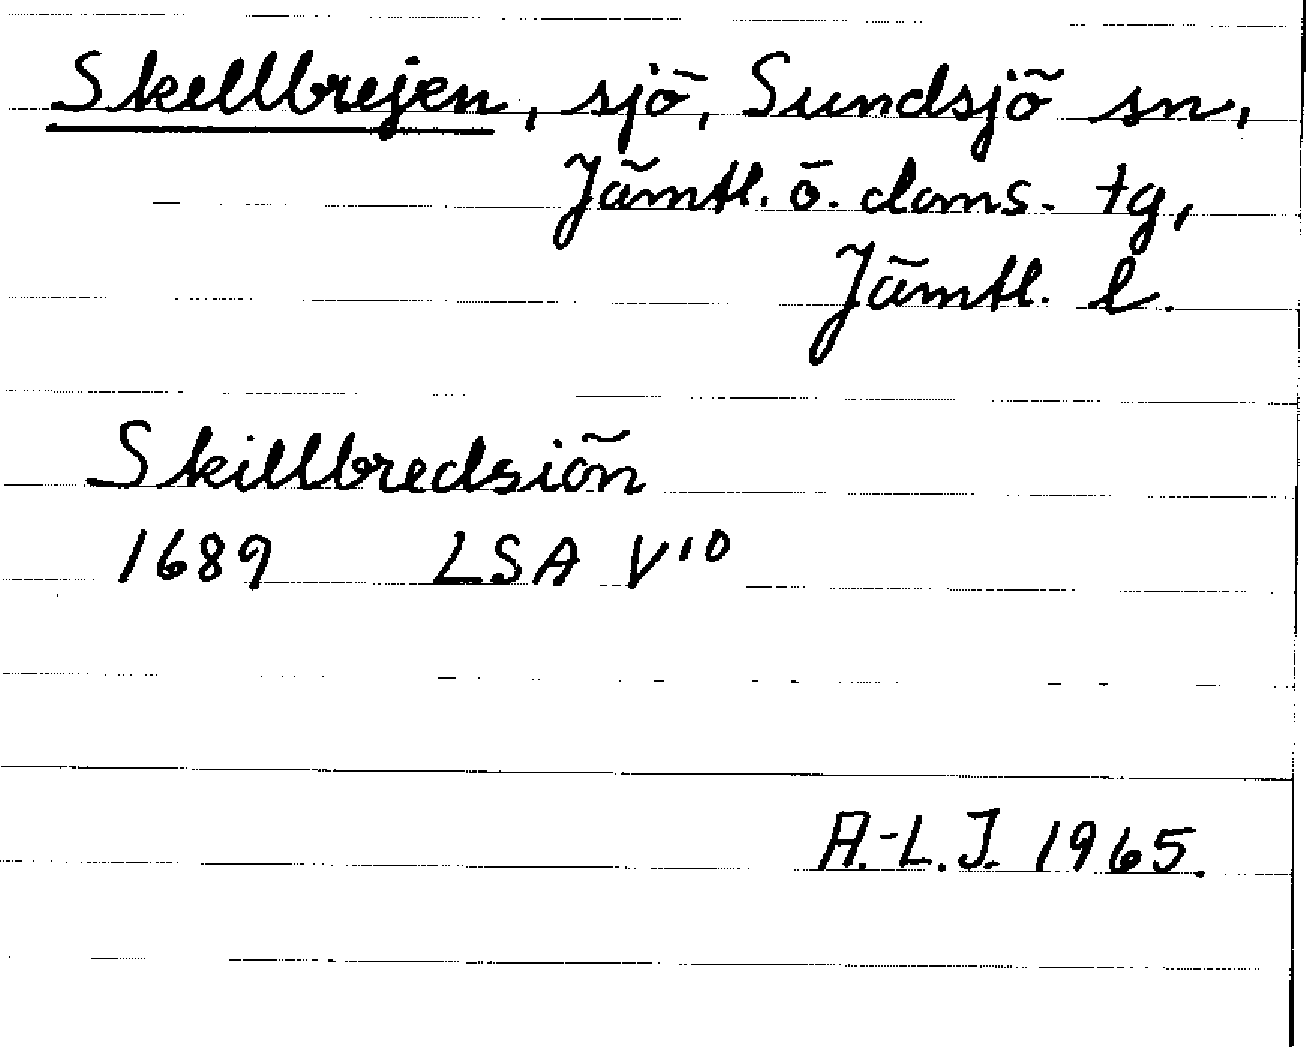 Skellbrejen, sjö, Sundsjö sn,
Jämtl. ö. doms. tg,
Jämtl. l.
Skillbredsiön
1689 LSA V10
A.-L.J. 1965.